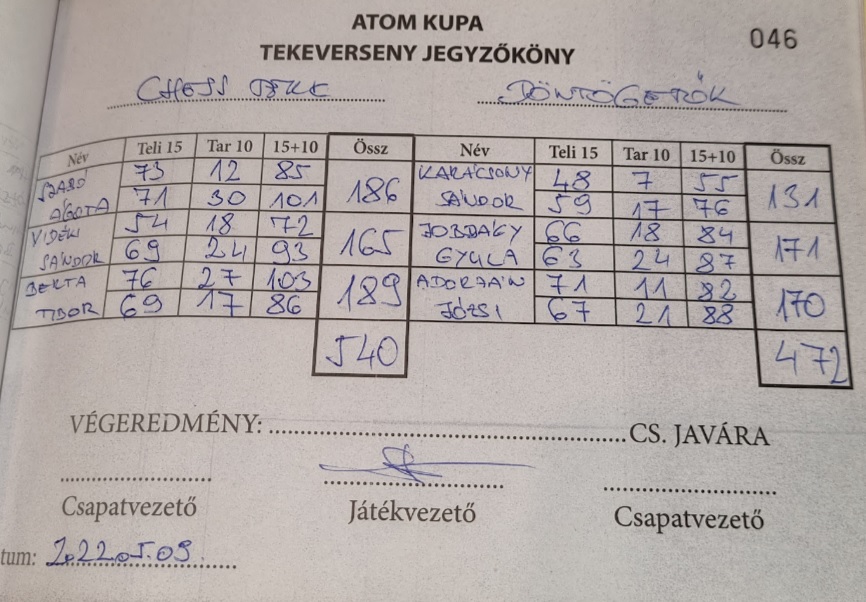 ATOM KUPA
TEKEVERSENY JEGYZŐKÖNY
046
CHESS TEKE DÖNTÖGETŐK
Név Teli 15 Tar 10 15+10 Össz Név Teli 15 Tar 10 15+10 Össz
SZABÓ 73 12 85 186 KARÁCSONY 48 7 55 131
ÁGOTA 71 30 101 SÁNDOR 59 17 76
VIDÉKI 54 18 72 165 JOBBÁGY 66 18 84 171
SÁNDOR 69 24 93 GYULA 63 24 87
BERTA 76 27 103 189 ADORJÁN 71 11 82 170
TIBOR 69 17 86 JÓZSI 67 21 88
540 472
VÉGEREDMÉNY: CS. JAVÁRA
Csapatvezető Játékvezető Csapatvezető
tum: 2022.05.09.